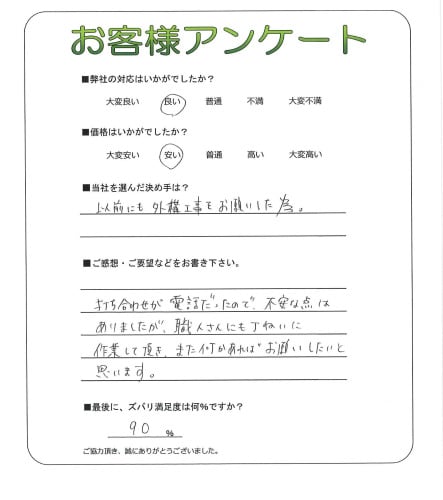 お客様アンケート
■弊社の対応はいかがでしたか?
大変良い 良い 普通 不満 大変不満
■価格はいかがでしたか?
大変安い 安い 普通 高い 大変高い
■当社を選んだ決め手は?
以前にも外構工事をお願いした為。
■ご感想・ご要望などをお書き下さい。
打ち合わせが電話だったので、不安な点は
ありましたが、職人さんにも丁ねいに
作業して頂き、また何かあればお願いしたいと
思います。
■最後に、ズバリ満足度は何%ですか?
90 %
ご協力頂き、誠にありがとうございました。